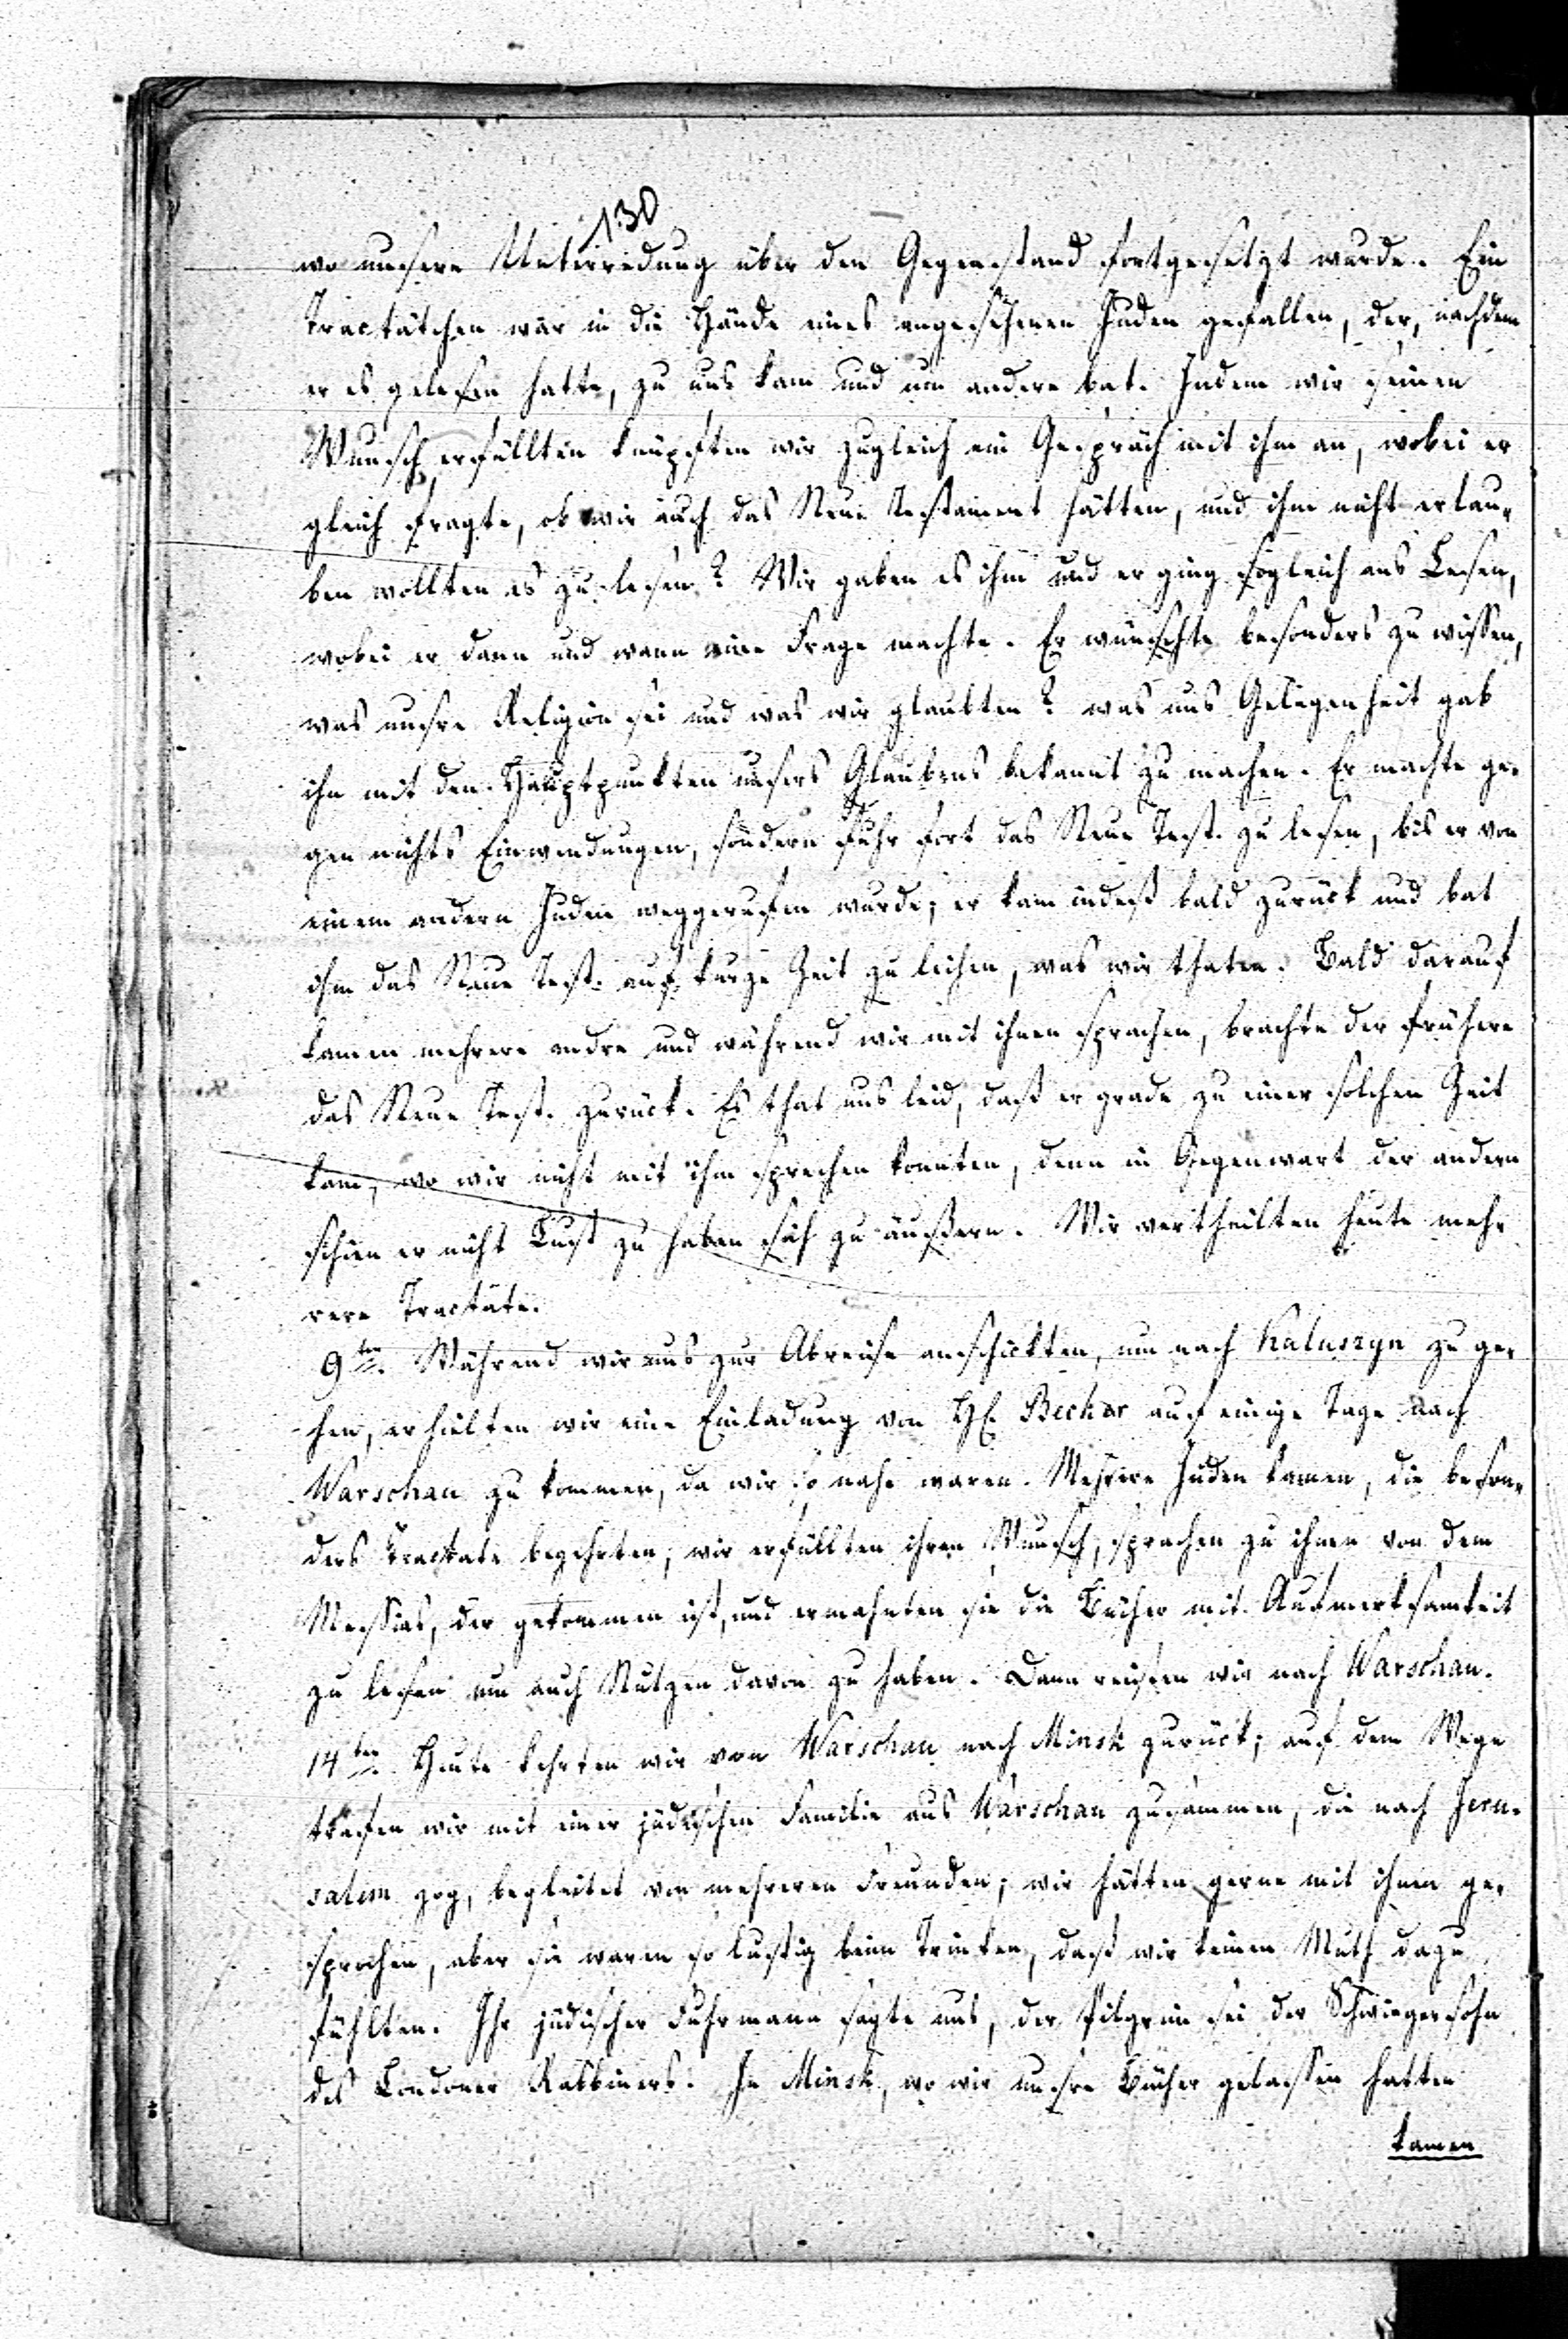 130
wo unsere Unterredung über den Gegenstand fortgesetzt wurde. Ein
Tractätchen war in die Hände eines angesehenen Juden gefallen, der, nachdem
er es gelesen hatte, zu uns kam und um andere bat. Indem wir seinen
Wunsch erfüllten knüpften wir zugleich ein Gespräch mit ihm an, wobei er
gleich fragte, ob wir auch das Neue Testament hätten, und ihm nicht erlau-
ben wollten es zu lesen? Wir gaben es ihm und er ging sogleich ans Lesen,
wobei er dann und wann eine Frage machte. Er wünschte besonders zu wissen,
was unsre Religion sei und was wir glaubten? was uns Gelegenheit gab
ihn mit den Hauptpunkten unsers Glaubens bekannt zu machen. Er machte ge-
gen nichts Einwendungen, sondern fuhr fort das Neue Test. zu lesen, bis er von
einem andern Juden weggerufen wurde; er kam indeß bald zurück und bat
ihm das Neue Test. auf kurze Zeit zu leihen, was wir thaten. Bald darauf
kamen mehrere andre und während wir mit ihnen sprachen, brachte der frühere
das Neue Test. zurück. Es that uns leid, daß er grade zu einer solchen Zeit
kam, wo wir nicht mit ihm sprechen konnten, denn in Gegenwart der andern
schien er nicht Lust zu haben sich zu äußern. Wir vertheilten heute meh-
rere Tractäte.
9ten. Während wir uns zur Abreise anschickten, um nach Kaluszyn zu ge-
hen, erhielten wir eine Einladung von H. Becker auf einige Tage nach
Warschau zu kommen, da wir so nahe waren. Mehrere Juden kamen, die beson-
ders Tractate begehrten; wir erfüllten ihren Wunsch, sprachen zu ihnen von dem
Messias, der gekommen ist, und ermahnten sie die Bücher mit Aufmerksamkeit
zu lesen um auch Nutzen davon zu haben. Dann reisten wir nach Warschau.
14ten. Heute kehrten wir von Warschau nach Minsk zurück; auf dem Wege
trafen wir mit einer jüdischen Familie aus Warschau zusammen, die nach Jeru-
salem zog, begleitet von mehreren Freunden; wir hätten gerne mit ihnen ge-
sprochen, aber sie waren so lustig beim Trinken, daß wir keinen Muth dazu
fühlten. Ihr jüdischer Fuhrmann sagte uns, der Pilgrim sei der Schwiegersohn
des Londoner Rabbiners. In Minsk, wo wir unsre Bücher gelassen hatten
kamen